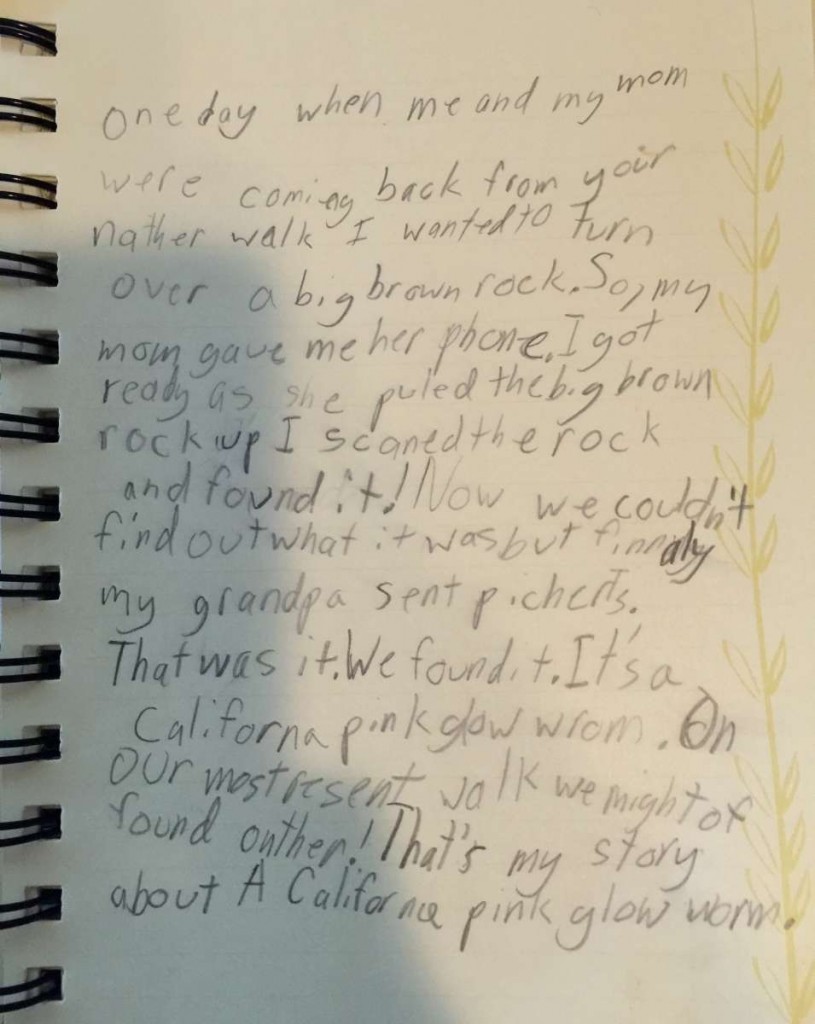 One day when me and my mom
were coming back from your
nather walk I wanted to turn
over a big brown rock. So, my
mom gave me her phone. I got
ready as she puled the big brown
rock up I scaned the rock
and found it! Now we couldn't
find out what it was but finnaly
my grandpa sent picherts.
That was it. We found it. It's a
Californa pink glow wrom. On
our most resent walk we might of
found onther! That's my story
about A Californa pink glow worm.